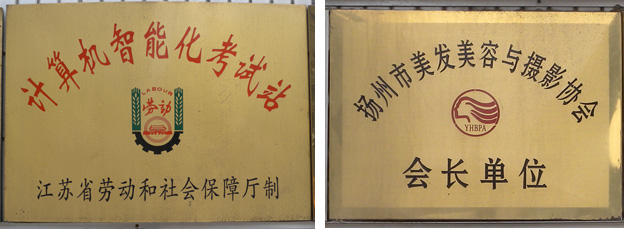 计算机智能化考试站
LABOUR
劳动
江苏省劳动和社会保障厅制
扬州市美发美容与摄影协会
YHBPA
会长单位